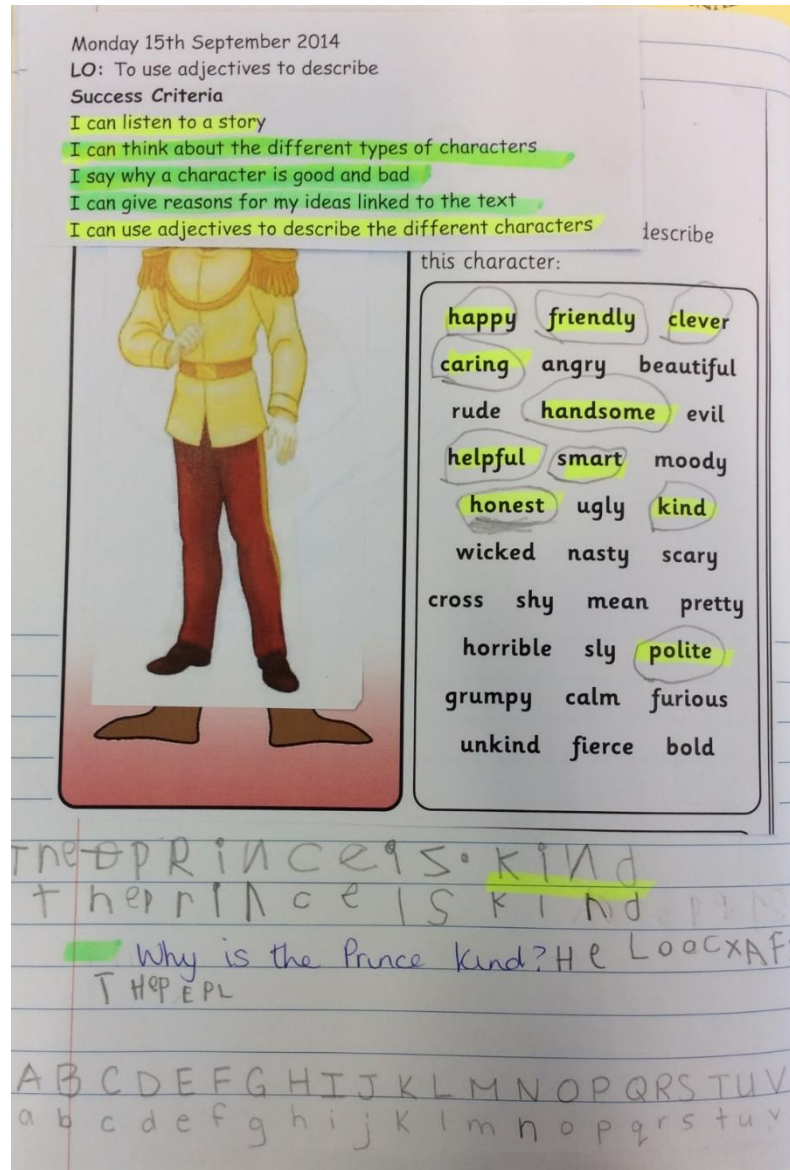 Monday 15th September 2014
LO: To use adjectives to describe
Success Criteria
I can listen to a story
I can think about the different types of characters
I say why a character is good and bad
I can give reasons for my ideas linked to the text
I can use adjectives to describe the different characters
describe
this character:
happy friendly clever
caring angry beautiful
rude handsome evil
helpful smart moody
honest ugly kind
wicked nasty scary
cross shy mean pretty
horrible sly polite
grumpy calm furious
unkind fierce bold
The PRiNce is. KiNd
the prince is kind
Why is the Prince kind? He LoocxAF
THe pEPL
A B C D E F G H I J K L M N O P Q R S T U V
a b c d e f g h i j k l m n o p q r s t u v